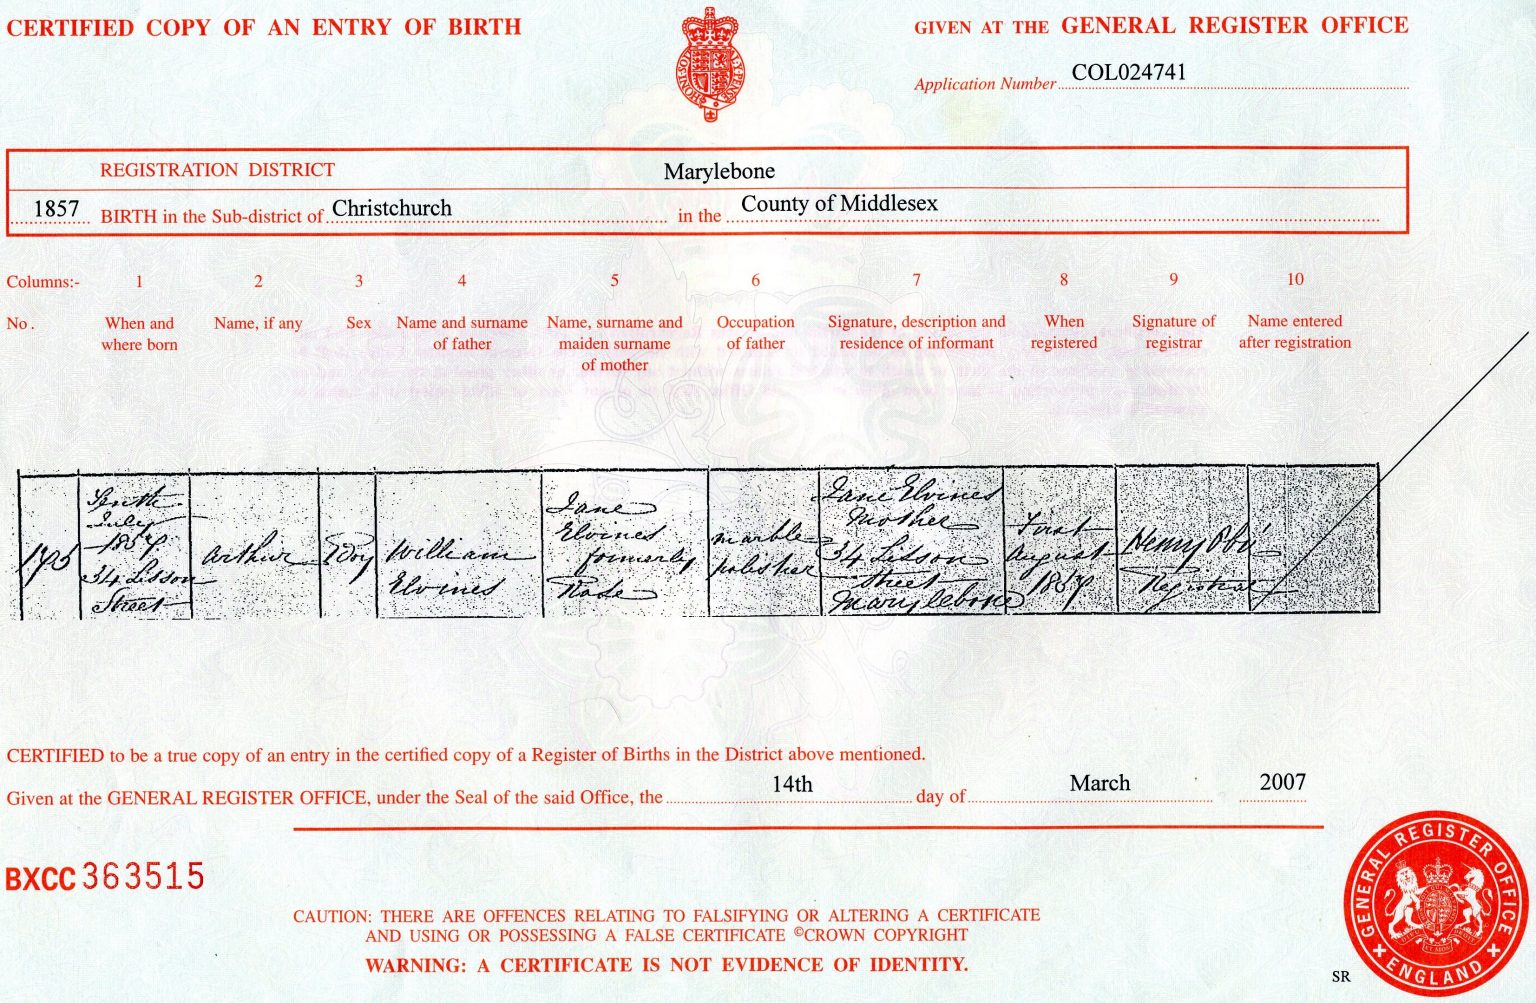 CERTIFIED COPY OF AN ENTRY OF BIRTH
GIVEN AT THE GENERAL REGISTER OFFICE
Application Number COL024741
REGISTRATION DISTRICT Marylebone
1857 BIRTH in the Sub-district of Christchurch in the County of Middlesex
Columns:- 1 2 3 4 5 6 7 8 9 10
No. When and where born Name, if any Sex Name and surname of father Name, surname and maiden surname of mother Occupation of father Signature, description and residence of informant When registered Signature of registrar Name entered after registration
175
Tenth
July
1857
34 Lisson
Street
Arthur
Boy
William
Elvines
Jane
Elvines
formerly
marble
polisher
Jane Elvines
Mother
34 Lisson
Street
Marylebone
First
August
1857
Henry
Registrar
CERTIFIED to be a true copy of an entry in the certified copy of a Register of Births in the District above mentioned.
Given at the GENERAL REGISTER OFFICE, under the Seal of the said Office, the 14th day of March 2007
BXCC 363515
CAUTION: THERE ARE OFFENCES RELATING TO FALSIFYING OR ALTERING A CERTIFICATE
AND USING OR POSSESSING A FALSE CERTIFICATE ©CROWN COPYRIGHT
WARNING: A CERTIFICATE IS NOT EVIDENCE OF IDENTITY.
SR
GENERAL REGISTER OFFICE
ENGLAND